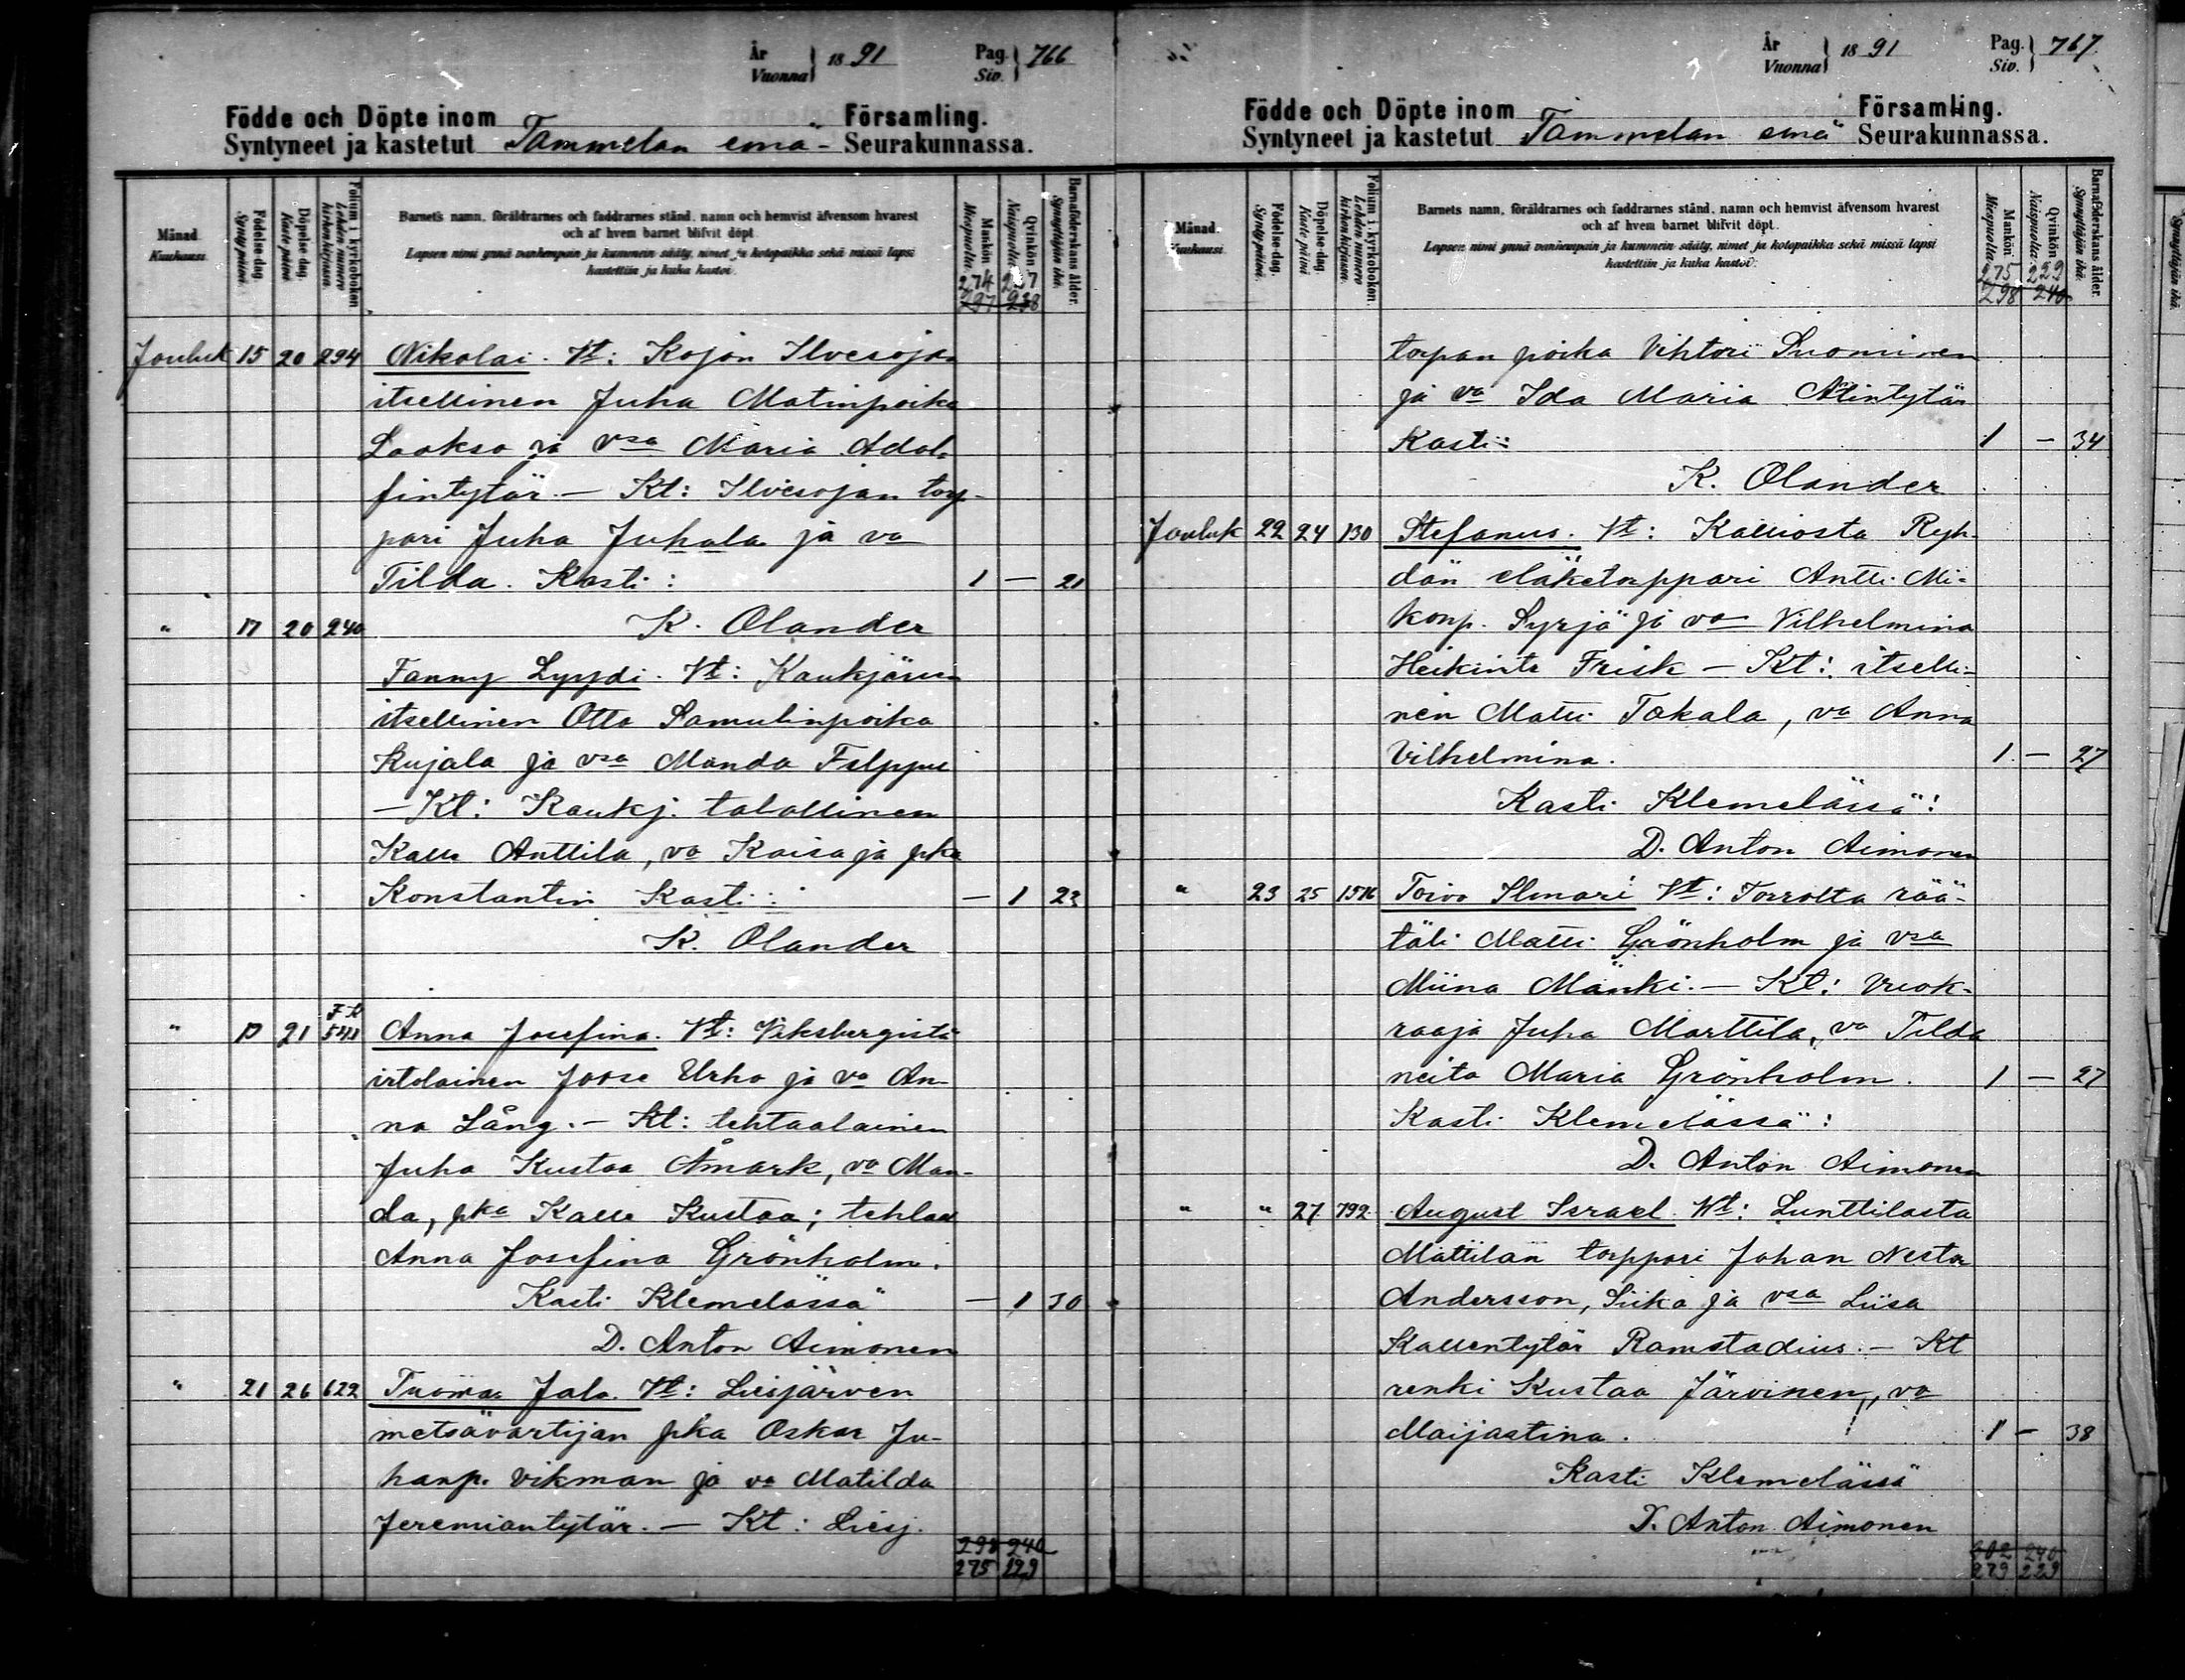 År
Vuonna } 1891 Pag.
Siv. } 766
Födde och Döpte inom Församling.
Syntyneet ja kastetut Tammelan emä- Seurakunnassa.
Månad. Kuukausi.
Födelse-dag. Syntypäivä.
Döpelse-dag. Kastepäivä.
Folium i kyrkoboken. Lehden numero kirkonkirjassa.
Barnets namn, föräldrarnes och faddrarnes stånd, namn och hemvist äfvensom hvarest
och af hvem barnet blifvit döpt.
Lapsen nimi ynnä vanhempain ja kummein sääty, nimet ja kotopaikka sekä missä lapsi
kastettiin ja kuka kastoi.
Mankön. Miespuolia.
Qvinkön. Naispuolia.
Barnaföderskans ålder. Synnyttäjän ikä.
274 227
297 238
Jouluk 15 20 294 Nikolai. Vt: Kojon Ilvesojan
itsellinen Juha Matinpoika
Laakso ja vsa Maria Adol-
fintytär. — Kt: Ilvesojan torp-
pari Juha Juhala ja va
Tilda. Kasti: 1 — 21
" 17 20 240 K. Olander
Fanny Lyydi. Vt: Kaukjärven
itsellinen Otto Samulinpoika
Kujala ja vsa Manda Felppu
— Kt: Kaukj. talollinen
Kalle Anttila, va Kaisa ja pka
Konstantin Kasti: — 1 23
K. Olander
" 17 21 541 Anna Josefina. Vt: Viksbergistä
irtolainen Joose Urho ja va An-
na Lång. — Kt: tehtaalainen
Juha Kustaa Åmark, va Man-
da, pka Kalle Kustaa; tehlan
Anna Josefina Grönholm.
Kasti Klemelässä — 1 30
D. Anton Aimonen
" 21 26 622 Tuomas Jalo. Vt: Liesjärven
metsävartijan pka Oskar Ju-
hanp. Vikman ja va Matilda
Jeremiantytär. — Kt: Liesj.
298 240
275 229
År
Vuonna } 1891 Pag.
Siv. } 767
Födde och Döpte inom Församling.
Syntyneet ja kastetut Tammelan emä Seurakunnassa.
Månad. Kuukausi.
Födelse-dag. Syntypäivä.
Döpelse-dag. Kastepäivä.
Folium i kyrkoboken. Lehden numero kirkonkirjassa.
Barnets namn, föräldrarnes och faddrarnes stånd, namn och hemvist äfvensom hvarest
och af hvem barnet blifvit döpt.
Lapsen nimi ynnä vanhempain ja kummein sääty, nimet ja kotopaikka sekä missä lapsi
kastettiin ja kuka kastoi.
Mankön. Miespuolia.
Qvinkön. Naispuolia.
Barnaföderskans ålder. Synnyttäjän ikä.
275 229
298 240
torpan poika Vihtori Suominen
ja va Ida Maria
Kasti: 1 — 34
K. Olander
Jouluk 22 24 130 Stefanus. Vt: Kalliosta Ryh-
dän eläketorppari Antti Mi-
konp. Syrjä ja va Vilhelmina
Heikints Frisk — Kt: itselli-
nen Matti Takala, va Anna
Vilhelmina. 1 — 27
Kasti Klemelässä:
D. Anton Aimonen
" 23 25 1516 Toivo Ilmari Vt: Torrolta rää-
täli Matti Grönholm ja vsa
Miina Mänki. — Kt: Vuok-
raaja Juha Marttila, va Tilda
neito Maria Grönholm. 1 — 27
Kasti Klemelässä:
D. Anton Aimonen
" " 27 792 August Israel. Vt: Lunttilasta
Mattilan torppari Johan Nestor
Andersson, Siika ja vsa Liisa
Kallentytär Ramstadius. — Kt
renki Kustaa Järvinen, va
Maijastina. 1 — 38
Kasti Klemelässä
D. Anton Aimonen
302 240
279 229
Synnyttäjän ikä.